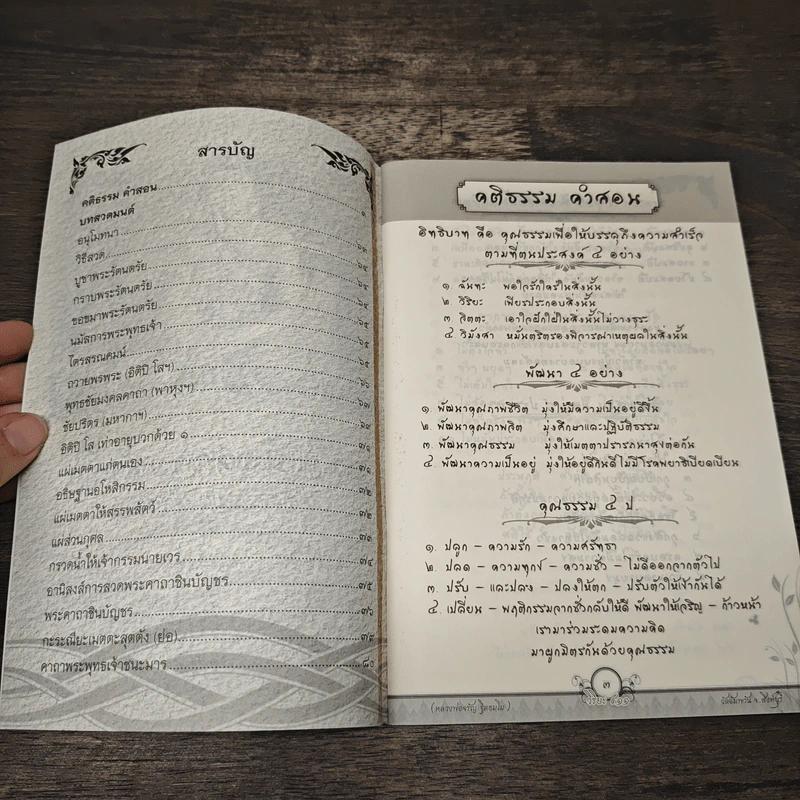 สารบัญ
คติธรรม คำสอน ๑
บทสวดมนต์
อนุโมทนา
วิธีสวด
บูชาพระรัตนตรัย
กราบพระรัตนตรัย
ขอขมาพระรัตนตรัย
นมัสการพระพุทธเจ้า
ไตรสรณคมน์
ถวายพรพระ (อิติปิ โสฯ)
พุทธชัยมงคลคาถา (พาหุงฯ) ๖๗
ชัยปริตร (มหากาฯ)
อิติปิ โส เท่าอายุบวกด้วย ๑ ๗๑
แผ่เมตตาแก่ตนเอง ๗๑
อธิษฐานอโหสิกรรม ๗๒
แผ่เมตตาให้สรรพสัตว์ ๗๒
แผ่ส่วนกุศล ๗๓
กรวดน้ำให้เจ้ากรรมนายเวร ๗๔
อานิสงส์การสวดพระคาถาชินบัญชร ๗๕
พระคาถาชินบัญชร ๗๖
กะระณียะเมตตะสุตตัง (ย่อ) ๗๙
คาถาพระพุทธเจ้าชนะมาร ๘๐
คติธรรม คำสอน
อิทธิบาท คือ คุณธรรมเพื่อให้บรรลุถึงความสำเร็จ
ตามที่ตนประสงค์ ๔ อย่าง
๑. ฉันทะ พอใจรักใคร่ในสิ่งนั้น
๒. วิริยะ เพียรประกอบสิ่งนั้น
๓. จิตตะ เอาใจฝักใฝ่ในสิ่งนั้นไม่วางธุระ
๔. วิมังสา หมั่นตริตรองพิจารณาเหตุผลในสิ่งนั้น
พัฒนา ๔ อย่าง
๑. พัฒนาคุณภาพชีวิต มุ่งให้มีความเป็นอยู่ดีขึ้น
๒. พัฒนาคุณภาพจิต มุ่งศึกษาและปฏิบัติธรรม
๓. พัฒนาคุณธรรม มุ่งให้เมตตาปรารถนาสุขต่อกัน
๔. พัฒนาความเป็นอยู่ มุ่งให้อยู่ดีกินดีไม่มีโรคพยาธิเบียดเบียน
คุณธรรม ๔ ป.
๑. ปลูก - ความรัก - ความศรัทธา
๒. ปลด - ความทุกข์ - ความชั่ว - ไม่ดีออกจากตัวไป
๓. ปรับ - และปลง - ปลงให้ตก - ปรับตัวให้เข้ากันได้
๔. เปลี่ยน - พฤติกรรมจากชั่วกลับให้ดี พัฒนาให้เจริญ - ก้าวหน้า
เรามาร่วมระดมความคิด
มาผูกมิตรกันด้วยคุณธรรม
๓
(หลวงพ่อจรัญ ฐิตธมฺโม)
วัดอัมพวัน จ. สิงห์บุรี